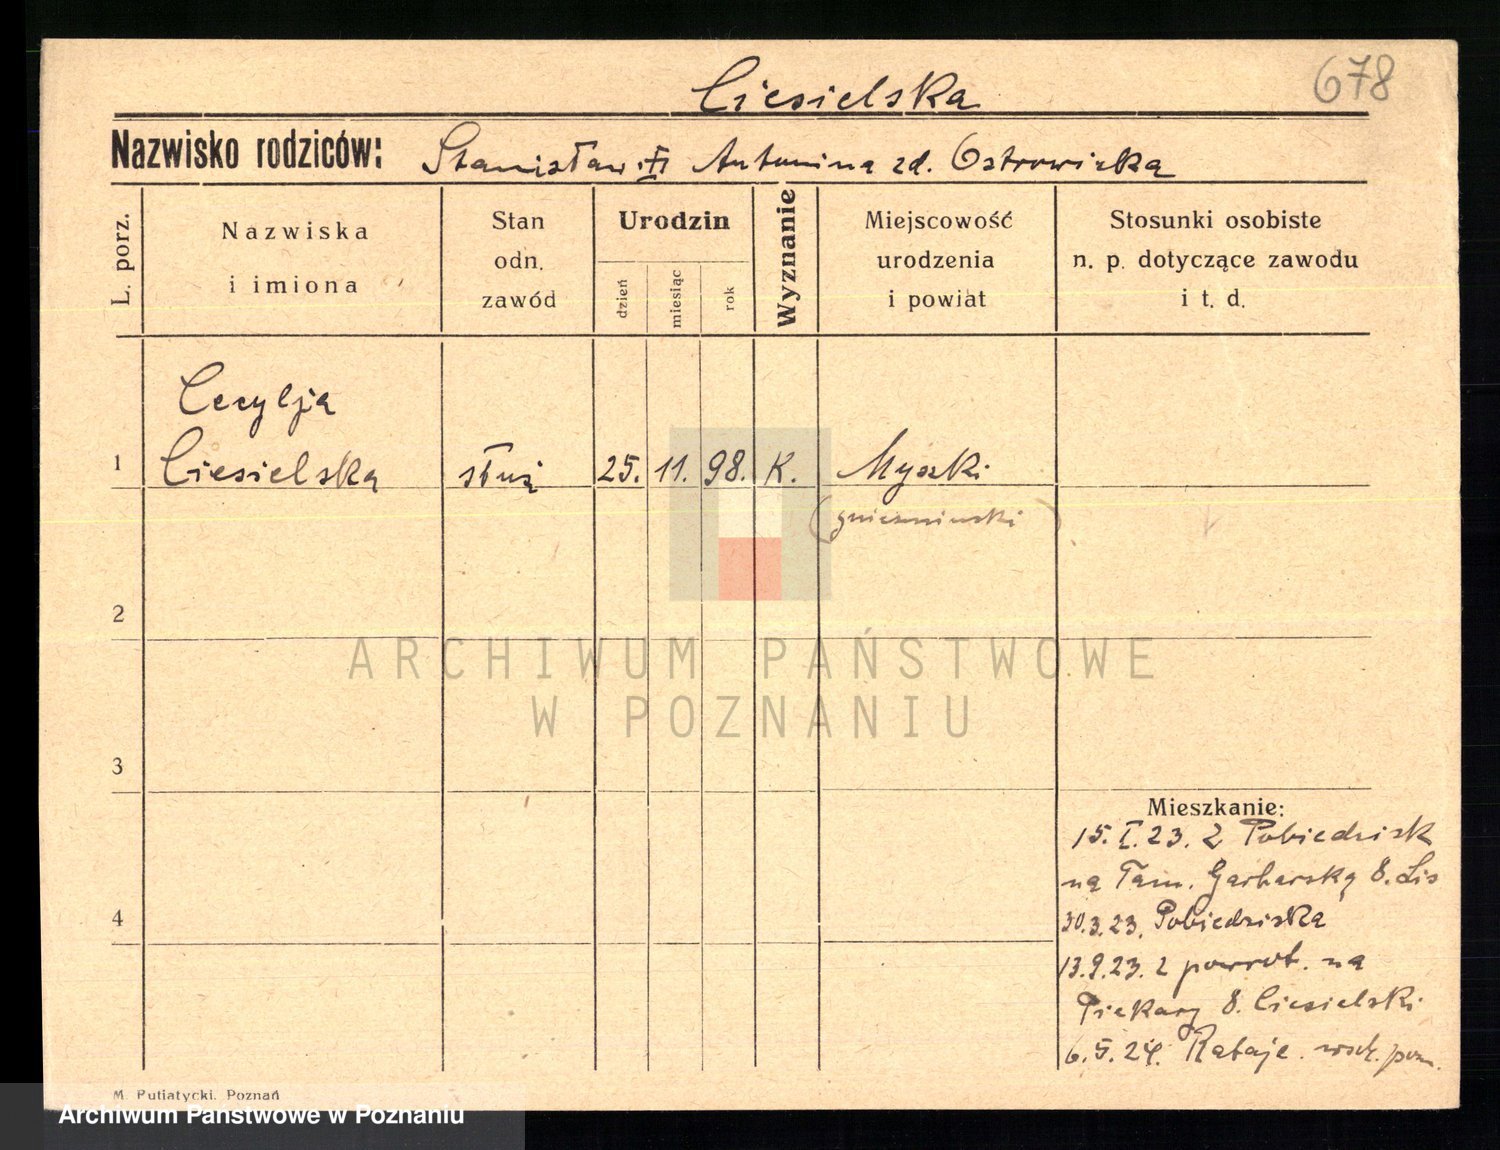 678
Ciesielska
Nazwisko rodziców: Stanisław Antonina zd. Ostrowicka
L. porz.
Nazwiska
i imiona
Stan
odn.
zawód
Urodzin
dzień
miesiąc
rok
Wyznanie
Miejscowość
urodzenia
i powiat
Stosunki osobiste
n. p. dotyczące zawodu
i t. d.
Cecylja
1 Ciesielska służ 25. 11. 98. K. Myszki
(gnieznienski)
2
3
4
Mieszkanie:
15. I. 23. z Pobiedzisk
na Tam. Garbarską 8. Lis
30.3.23. Pobiedziska
13.9.23. z powrot. na
Piekary 8. Ciesielski
6. 5. 24. Rataje. wsch. pozn.
M. Putiatycki. Poznań
ARCHIWUM PAŃSTWOWE
W POZNANIU
Archiwum Państwowe w Poznaniu